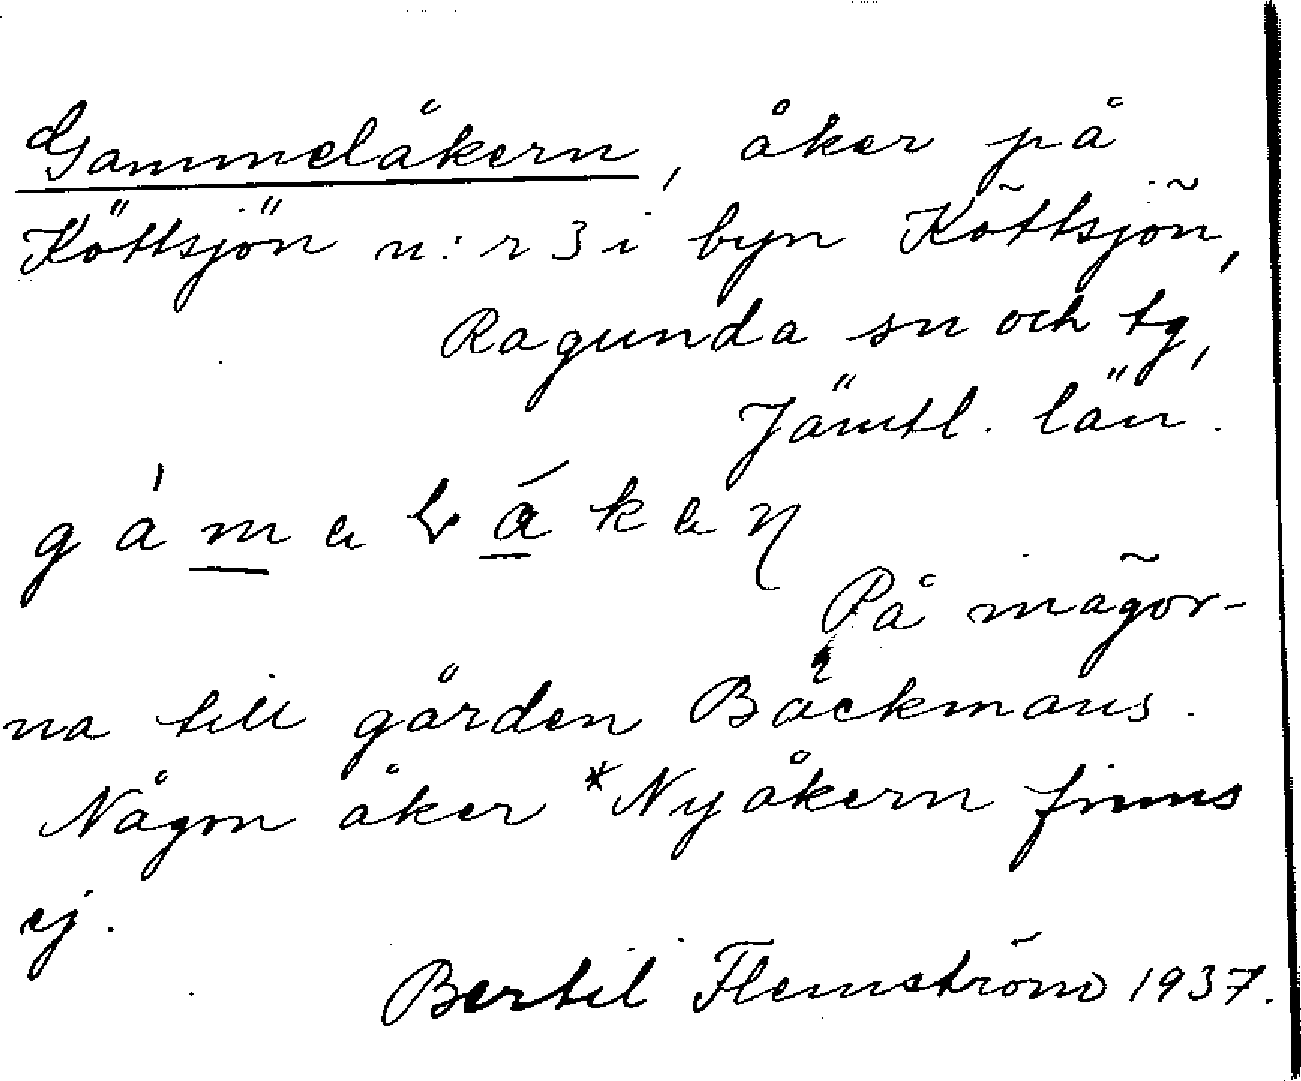 Gammelåkern, åker på
Köttsjön n:r 3 i byn Köttsjön,
Ragunda sn och tg,
Jämtl. län.
På inägor-
na till gården Bäckmans.
Någon åker *Nyåkern finns
ej.
Bertil Flemström 1937.